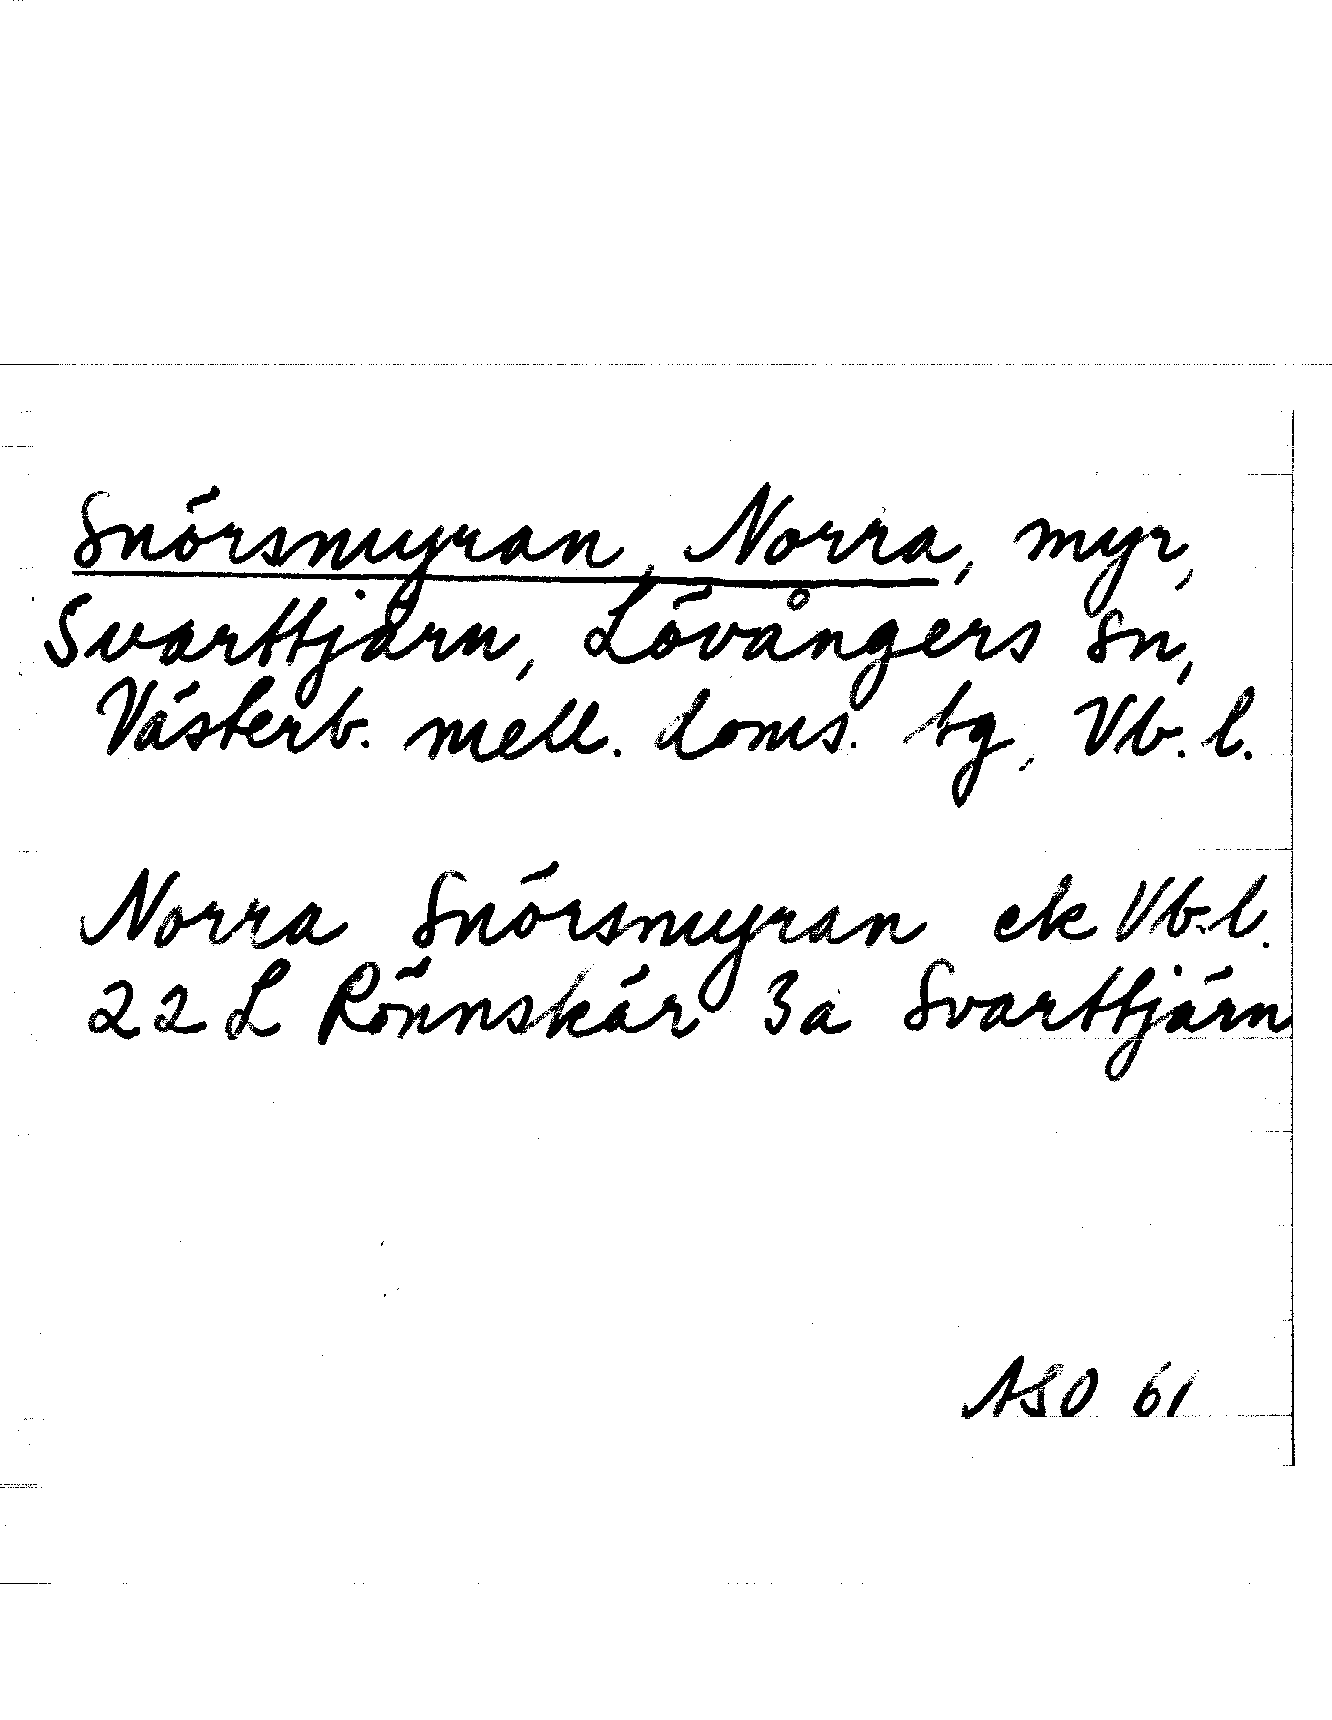 Snörsmyran, Norra, myr,
Svarttjärn, Lövångers sn,
Västerb. mell. doms. tg, Vb. l.
Norra Snörsmyran ek Vb. l.
22 L Rönnskär 3a Svarttjärn
ASO 61